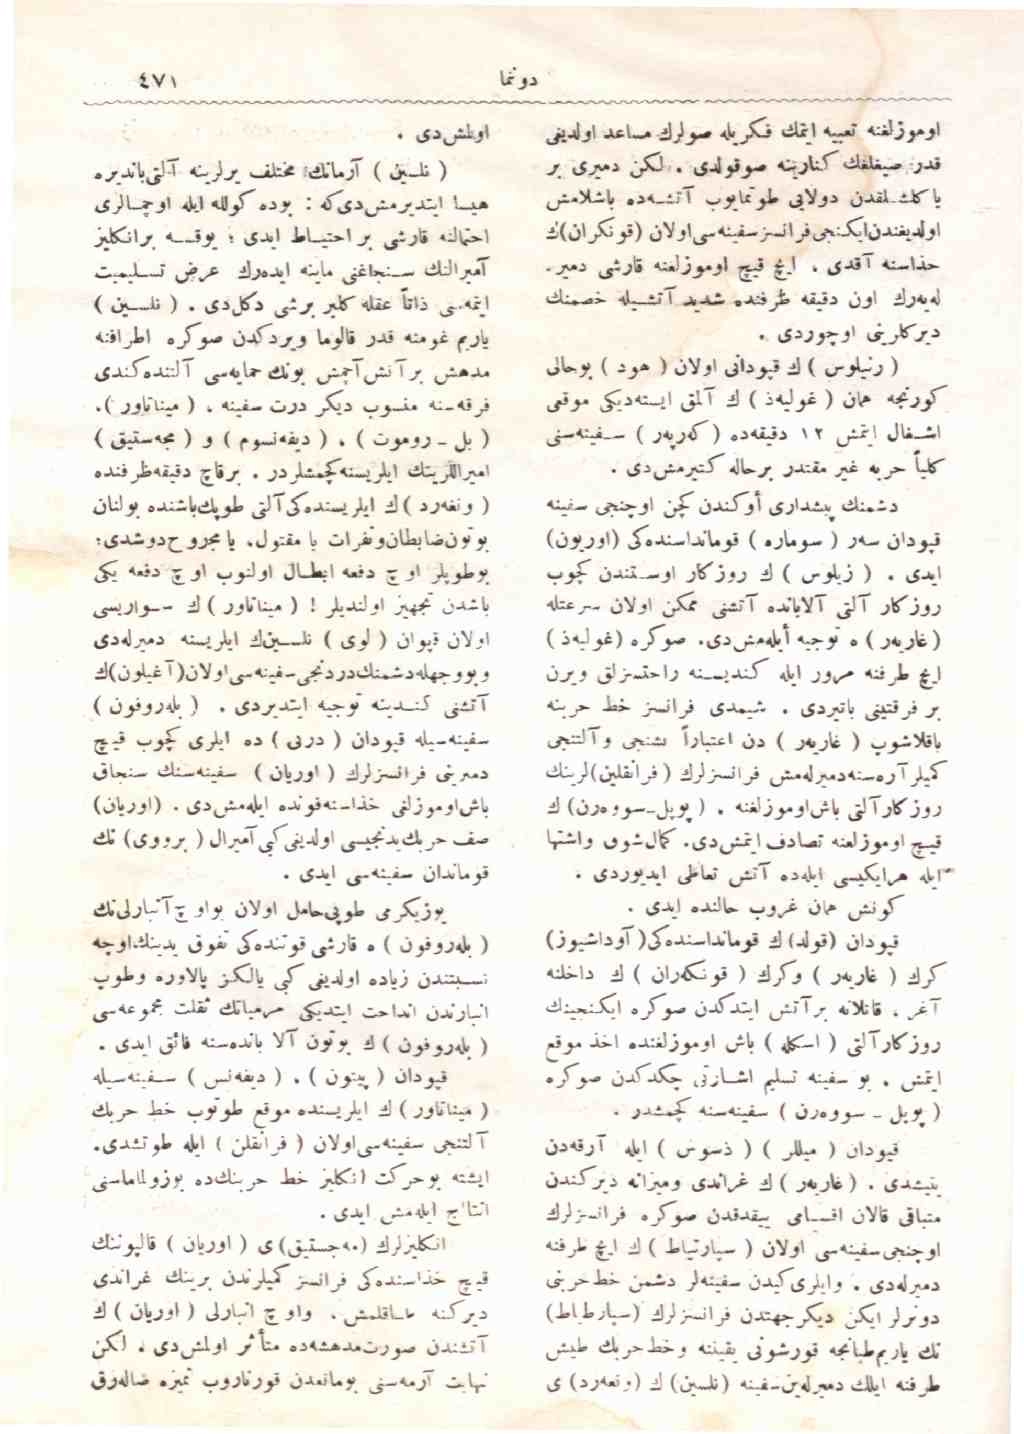 دوننما
٤٧١
اوموزلغنه تعبیه ایتمك فكریله صولرك مساعد اولدیغی
قدر صیغلغك كنارینه صوقولدی . لكن دمیری بر
یا كلشلقدن دولایی طوتمایوب آتشه‌ده باشلامش
اولدیغندن ایكنجی فرانسز سفینه‌سی اولان (قونكران)ك
حذاسنه آقدی . ایچ قیچ اوموزلغنه قارشی دمیر.
له‌یه‌رك اون دقیقه ظرفنده شدید آتشیله خصمنك
دیركلرینی اوچوردی .
( زیلوس ) ك قپودانی اولان ( هود ) بوحالی
كورنجه همان ( غولیه‌ذ ) ك آلمق ایسته‌دیكی موقعی
اشغال ایتمش ١٢ دقیقه‌ده ( كه‌ریه‌ر ) سفینه‌سنی
كلیاً حربه غیر مقتدر برحاله كتیرمش‌دی .
دشمنك پیشداری أوكندن كچن اوچنجی سفینه
قپودان سه‌ر ( سوماره ) قومانداسنده‌كی (اوریون)
ایدی . ( زیلوس ) ك روزكار اوستندن كچوب
روزكار آلتی آلابانده آتشنی ممكن اولان سرعتله
(غاریه‌ر ) ه توجیه أیله‌مش‌دی. صوكره (غولیه‌ذ )
ایچ طرفنه مرور ایله كندیسنه راحتسزلق ویرن
بر فرقتینی باتیردی . شیمدی فرانسز خط حربنه
یاقلاشوب ( غاریه‌ر ) دن اعتباراً بشنجی و آلتنجی
كمیلر آره‌سنه دمیرله‌مش فرانسزلرك ( فرانقلین)لرینك
روزكار آلتی باش‌اوموزلغنه . ( پوپل-سووه‌رن) ك
قیچ اوموزلغنه تصادف ایتمش‌دی. كمال شوق واشتها
ایله هرایكیسی ایله‌ده آتش تعاطی ایدیوردی .
كونش همان غروب حالنده ایدی .
قپودان (قولد) ك قومانداسنده‌كی( آوداشیوز)
كرك ( غاریه‌ر ) وكرك ( قونكه‌ران ) ك داخلنه
آغر ، قاتلانه برآتش ایتدكدن صوكره ایكنجینك
روزكار آلتی ( اسكله ) باش اوموزلغنده اخذ موقع
ایتمش . بو سفینه تسلیم اشارتی چكدكدن صوكره
( پوپل - سووه‌رن ) سفینه‌سنه كچمشدر .
قپودان ( میللر ) ( ذسوس ) ایله آرقه‌دن
یتیشدی . (غاریه‌ر ) ك غراندی ومیزانه دیركندن
متباقی قالان اقسامی ییقدقدن صوكره فرانسزلرك
اوچنجی سفینه‌سی اولان ( سپارتیاط ) ك ایچ طرفنه
دمیرله‌دی . وایلری كیدن سفینه‌لر دشمن خط حربنی
دونرلر ایكن دیكرجهتدن فرانسزلرك (سپارطیاط)
نك یاریم طبانجه قورشونی یقیننه وخط حربك طیش
طرفنه ایلك دمیرله‌ین سفینه (نلسین) ك (ونغه‌رد) ی
اولمش‌دی .
( نلسین ) آرمانك مختلف یرلرینه آلتی باندیره
هیسا ایتدیرمش‌دی‌كه : بوده كولله ایله اوچمالری
احتمالنه قارشی بر احتیاط ایدی ؛ یوقسه برانكلیز
آمیرالنك سنجاغنی ماینه ایده‌رك عرض تسلیمیت
ایتمه‌سی ذاتاً عقله كلیر برشی دكل‌دی . ( نلسین )
یاریم غومنه قدر قالوما ویردكدن صوكره اطرافنه
مدهش برآتش آچمش بونك حمایه‌سی آلتنده كندی
فرقه‌سنه منسوب دیكر درت سفینه ، ( میناتاور )،
( بل - روموت ) ، ( دیفه‌نسوم ) و ( مجه‌ستیق )
امیراللرینك ایلریسنه كچمشلردر . برقاچ دقیقه ظرفنده
( ونغه‌رد ) ك ایلریسنده‌كی آلتی طوپك باشنده بولنان
بوتون ضابطان ونفرات یا مقتول، یا مجروح دوشدی؛
بوطوپلر اوچ دفعه ابطال اولنوب اوچ دفعه یكی
باشدن تجهیز اولندیلر ! ( میناتاور ) ك سواریسی
اولان قپوان ( لوی ) نلسین‌ك ایلریسنه دمیرله‌دی
وبووجهله دشمنك دردنجی سفینه‌سی اولان (آغیلون)ك
آتشنی كندینه توجیه ایتدیردی . ( بله‌روفون )
سفینه‌سیله قپودان ( دربی ) ده ایلری كچوب قیچ
دمیرینی فرانسزلرك ( اوریان ) سفینه‌سنك سنجاق
باش‌اوموزلغی حذاسنه فونده ایله‌مش‌دی . (اوریان)
صف حربك یدنجیسی اولدیغی كبی آمیرال ( برووی) نك
قوماندان سفینه‌سی ایدی .
یوزیكرمی طوپی حامل اولان بو اوچ آنبارلی‌نك
( بله‌روفون ) ه قارشی قوتنده‌كی تفوق یدینك اوچه
نسبتندن زیاده اولدیغی كبی یالكز پالاوره وطوپ
انبارندن انداخت ایتدیكی مرمیاتك ثقلت مجموعه‌سی
( بله‌روفون ) ك بوتون آلا بانده‌سنه فائق ایدی .
قپودان ( پیتون ) ، ( دیفه‌نس ) سفینه‌سیله
( میناتاور ) ك ایلریسنده موقع طوتوب خط حربك
آلتنجی سفینه‌سی اولان ( فرانقلن ) ایله طوتشدی.
ایشته بوحركت انكلیز خط حربنك‌ده بوزولماماسنی
انتاج ایله‌مش ایدی .
انكلیزلرك (مه‌جستیق) ی ( اوریان ) قالیوننك
قیچ حذاسنده‌كی فرانسز كمیلرندن برینك غراندی
دیركنه طاقلمش، واوچ انبارلی ( اوریان ) ك
آتشندن صورت مدهشه‌ده متأثر اولمش‌دی . لكن
نهایت آرمه‌سنی بومانعدن قورتاروب تمیزه صاله‌رق